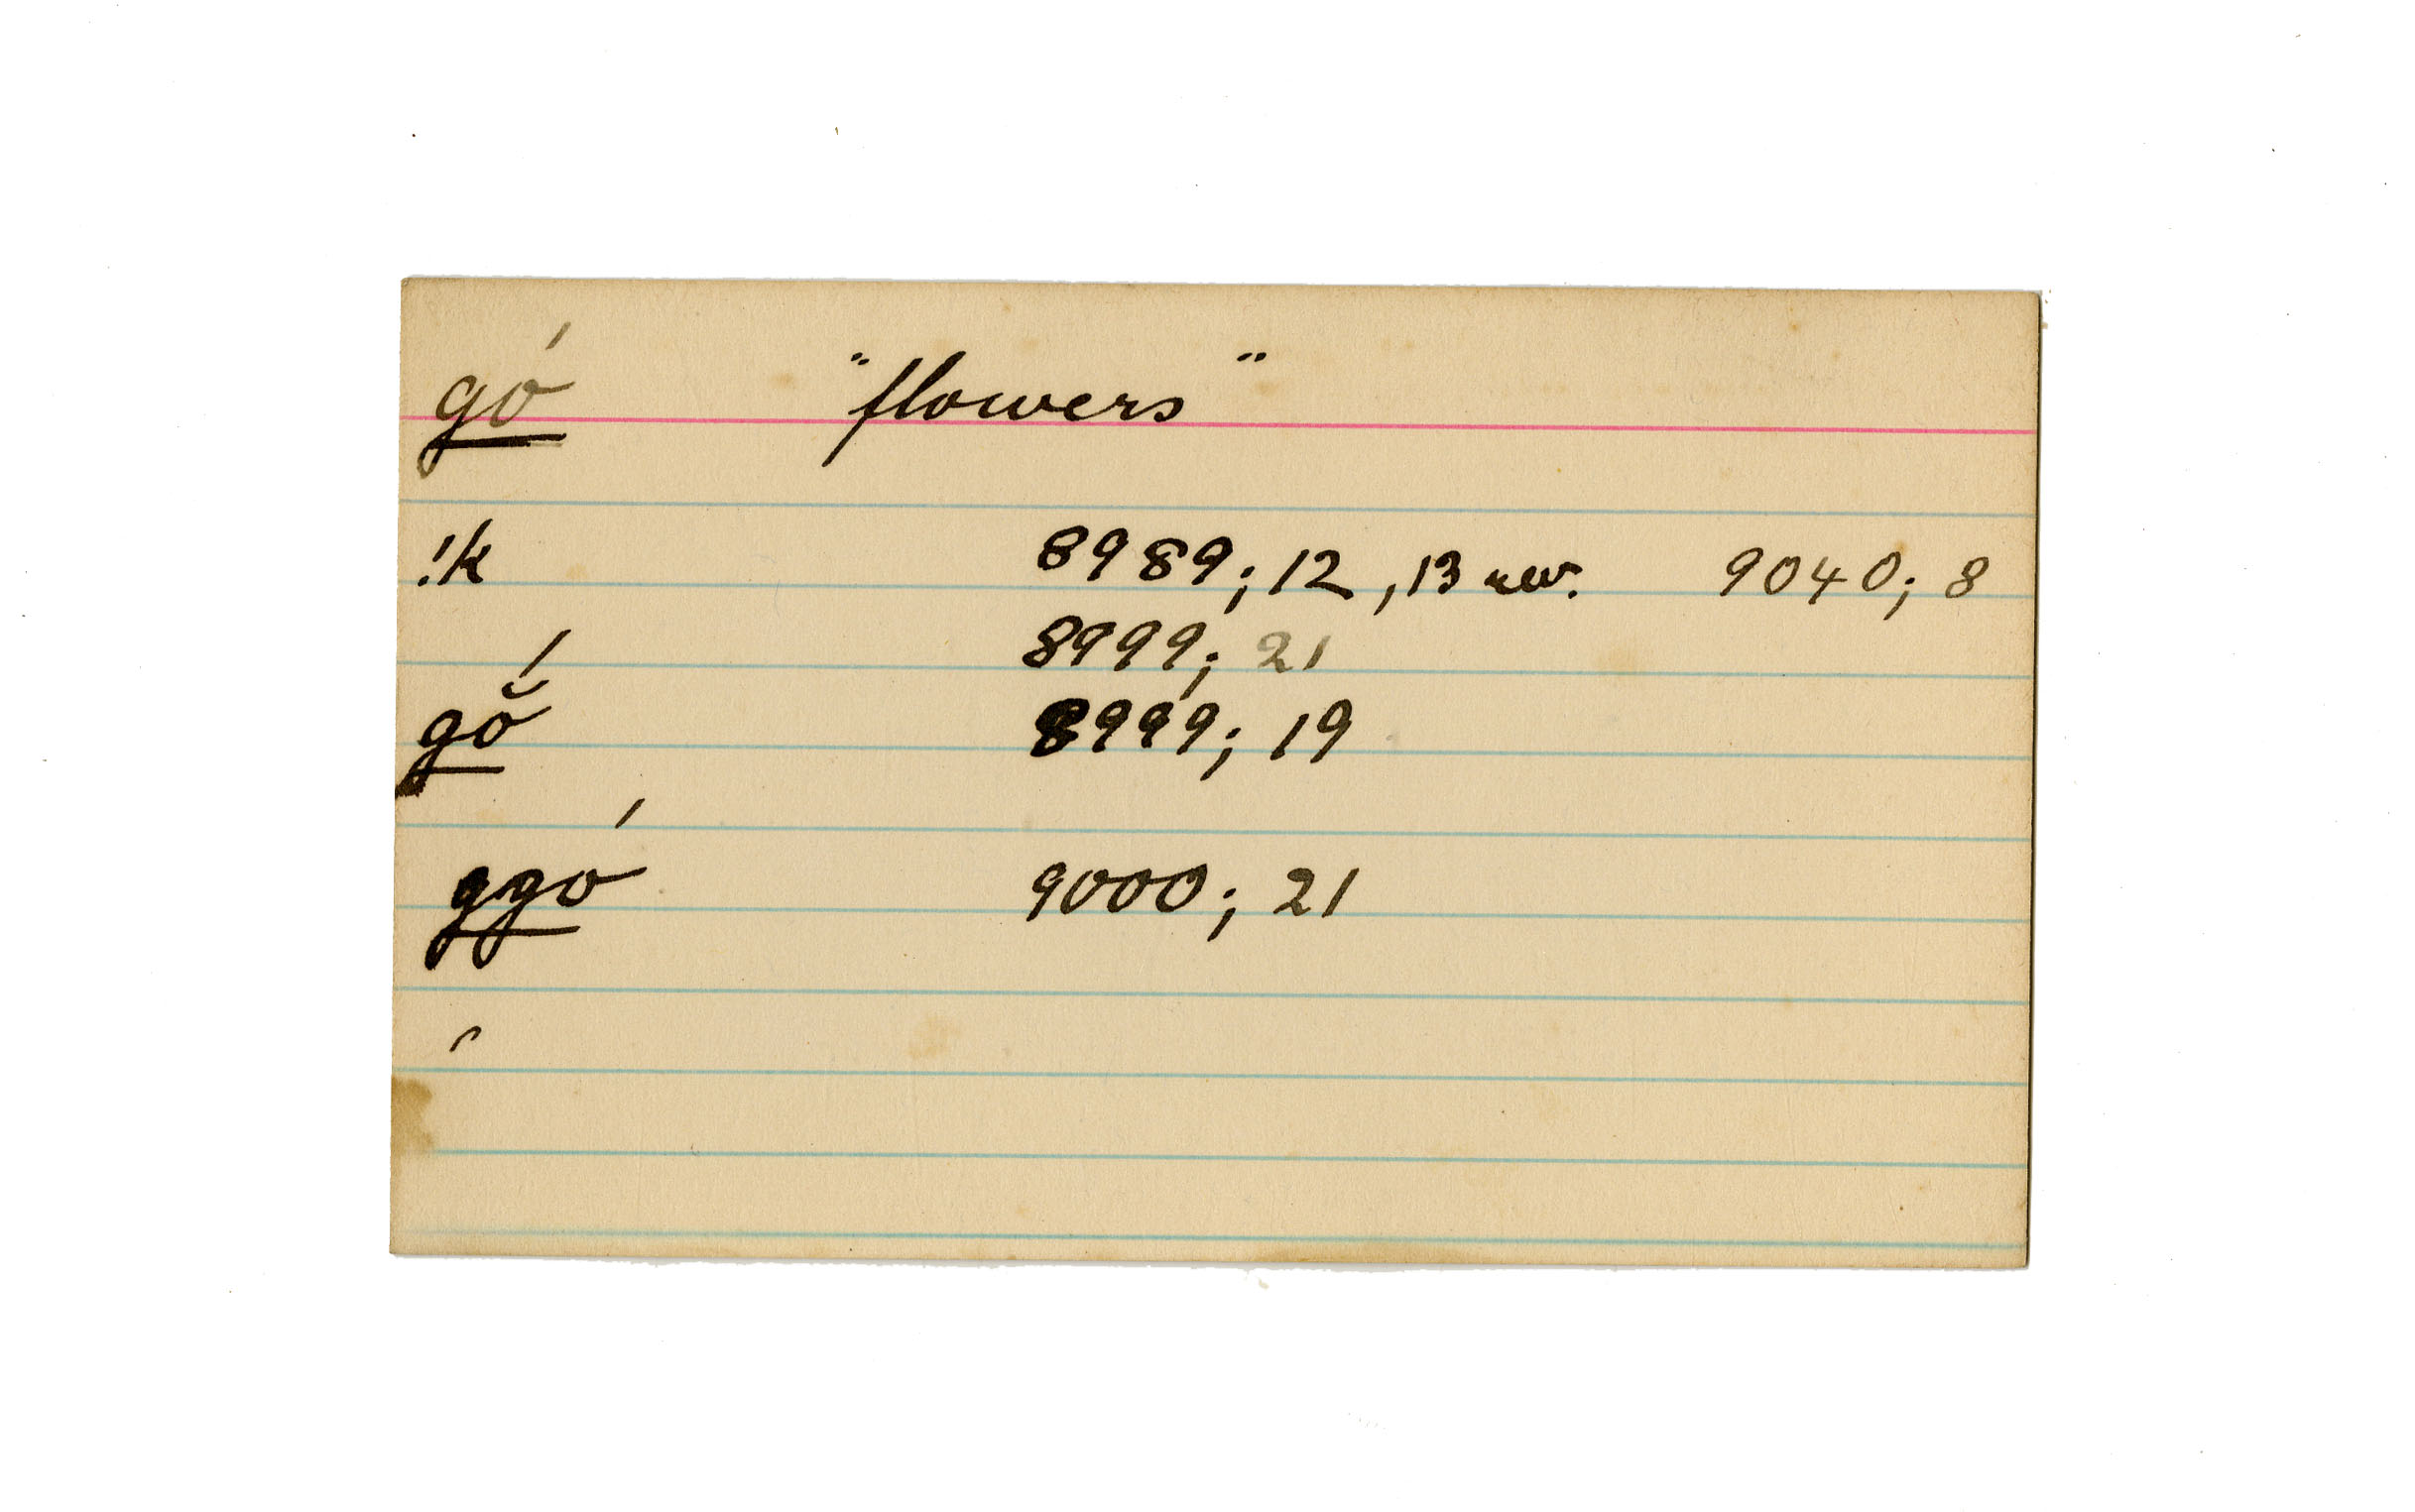 gó "flowers"
!k 8989; 12, 13 rev. 9040; 8
8999; 21
gŏ́ 8999; 19
ggó 9000; 21